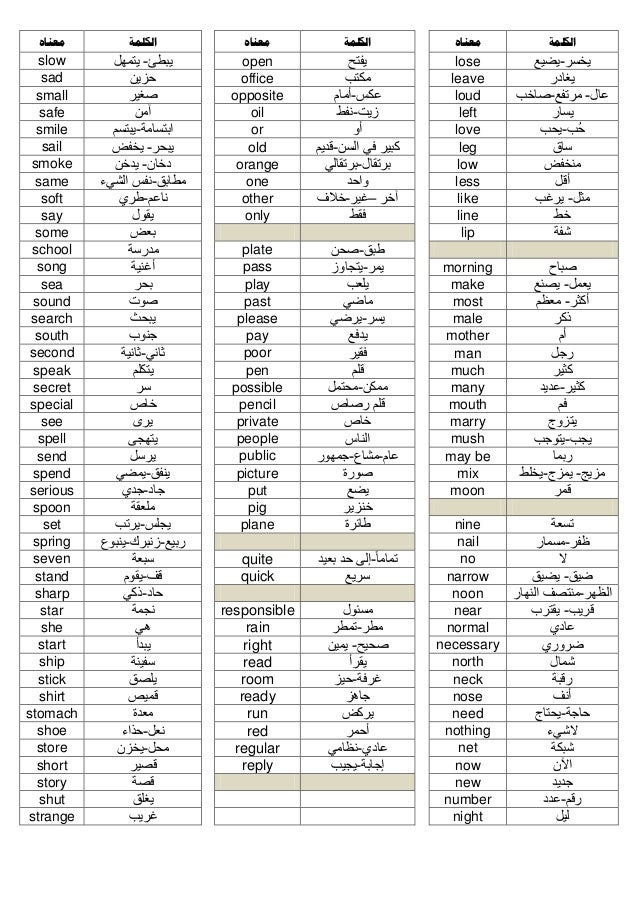 معناه الكلمة
slow يبطئ- يتمهل
sad حزين
small صغير
safe أمن
smile ابتسامة-يبتسم
sail يبحر- يخفض
smoke دخان- يدخن
same مطابق-نفس الشيء
soft ناعم-طري
say يقول
some بعض
school مدرسة
song أغنية
sea بحر
sound صوت
search يبحث
south جنوب
second ثاني-ثانية
speak يتكلم
secret سر
special خاص
see يرى
spell يتهجى
send يرسل
spend ينفق-يمضي
serious جاد-جدي
spoon ملعقة
set يجلس-يرتب
spring ربيع-زنبرك-ينبوع
seven سبعة
stand قف-يقوم
sharp حاد-ذكي
star نجمة
she هي
start يبدأ
ship سفينة
stick يلصق
shirt قميص
stomach معدة
shoe نعل-حذاء
store محل-يخزن
short قصير
story قصة
shut يغلق
strange غريب
معناه الكلمة
open يفتح
office مكتب
opposite عكس-أمام
oil زيت-نفط
or أو
old كبير في السن-قديم
orange برتقال-برتقالي
one واحد
other أخر –غير-خلاف
only فقط
plate طبق-صحن
pass يمر-يتجاوز
play يلعب
past ماضي
please يسر-يرضي
pay يدفع
poor فقير
pen قلم
possible ممكن-محتمل
pencil قلم رصاص
private خاص
people الناس
public عام-مشاع-جمهور
picture صورة
put يضع
pig خنزير
plane طائرة
quite تماما-إلى حد بعيد
quick سريع
responsible مسئول
rain مطر-تمطر
right صحيح- يمين
read يقرأ
room غرفة-حيز
ready جاهز
run يركض
red أحمر
regular عادي-نظامي
reply إجابة-يجيب
معناه الكلمة
lose يخسر-يضيع
leave يغادر
loud عال- مرتفع-صاخب
left يسار
love حُب-يحب
leg ساق
low منخفض
less أقل
like مثل- يرغب
line خط
lip شفة
morning صباح
make يعمل- يصنع
most أكثر- معظم
male ذكر
mother أم
man رجل
much كثير
many كثير-عديد
mouth فم
marry يتزوج
mush يجب-يتوجب
may be ربما
mix مزيج- يمزج-يخلط
moon قمر
nine تسعة
nail ظفر-مسمار
no لا
narrow ضيق- يضيق
noon الظهر-منتصف النهار
near قريب- يقترب
normal عادي
necessary ضروري
north شمال
neck رقبة
nose أنف
need حاجة-يحتاج
nothing لاشيء
net شبكة
now الآن
new جديد
number رقم-عدد
night ليل